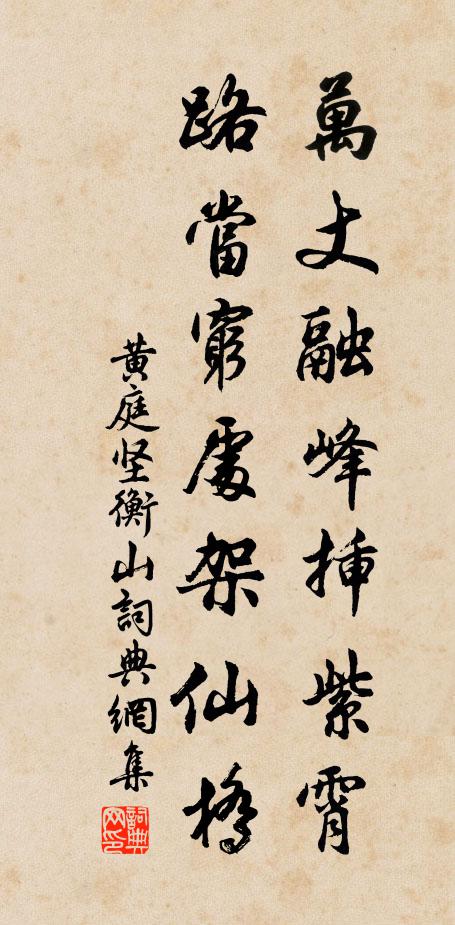 萬丈融峰揷紫霄
路當窮處架仙橋
黄庭坚衡山詞典網集
詞典网印